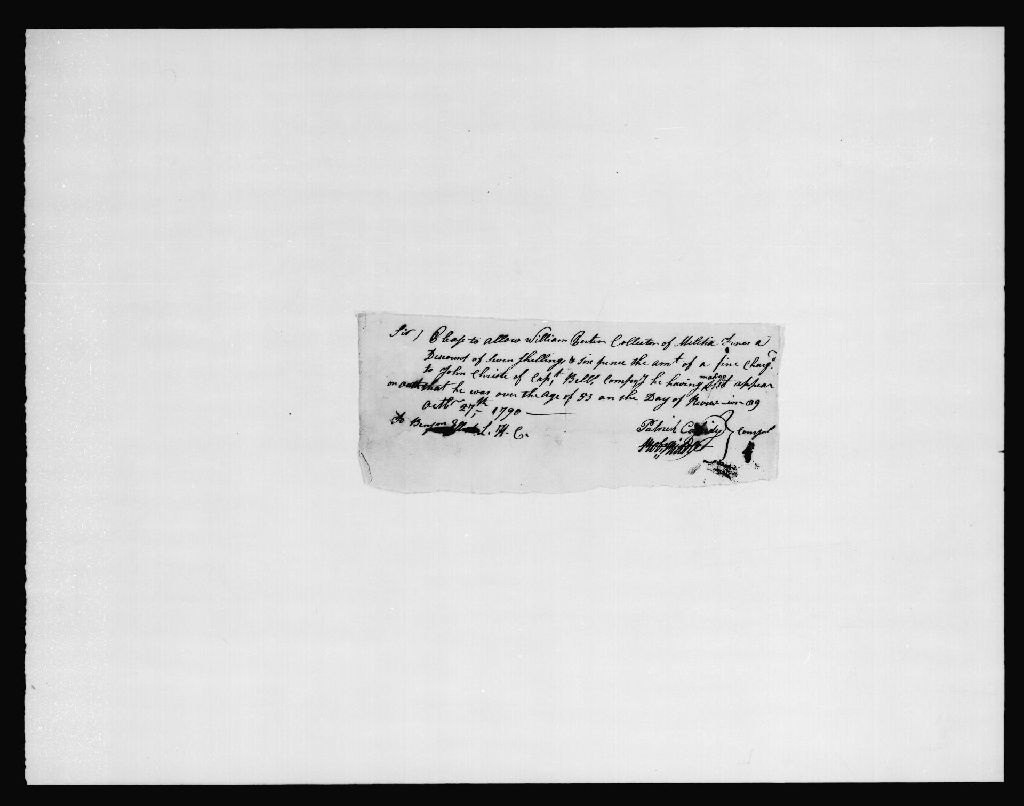 Sir } Please to allow William Collector of Militia Fines a
Discount of Seven Shillings & Six pence the amt. of a fine Charg'd
to John Christe of Capt. Bell's Compy. he having made appear
on oath that he was over the age of 53 on the Day of Review in 89
Octbr. 27th 1790
To Benson H. C.
Patrick